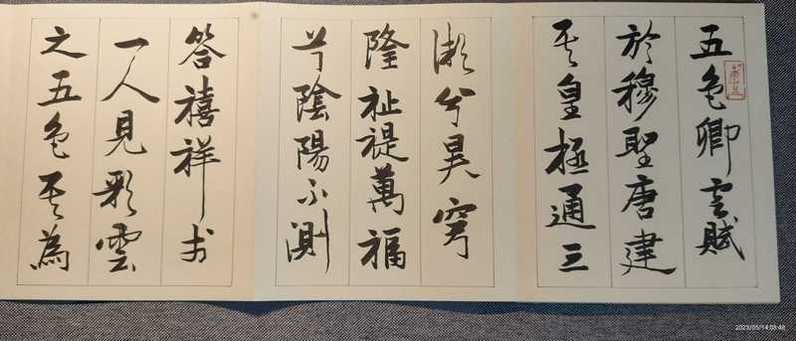 五色卿雲賦
於穆聖唐建
其皇極通三
微兮昊穹
隆祉禔萬福
兮陰陽不測
答禧祥於
一人見彩雲
之五色其為
2023/05/14 08:48